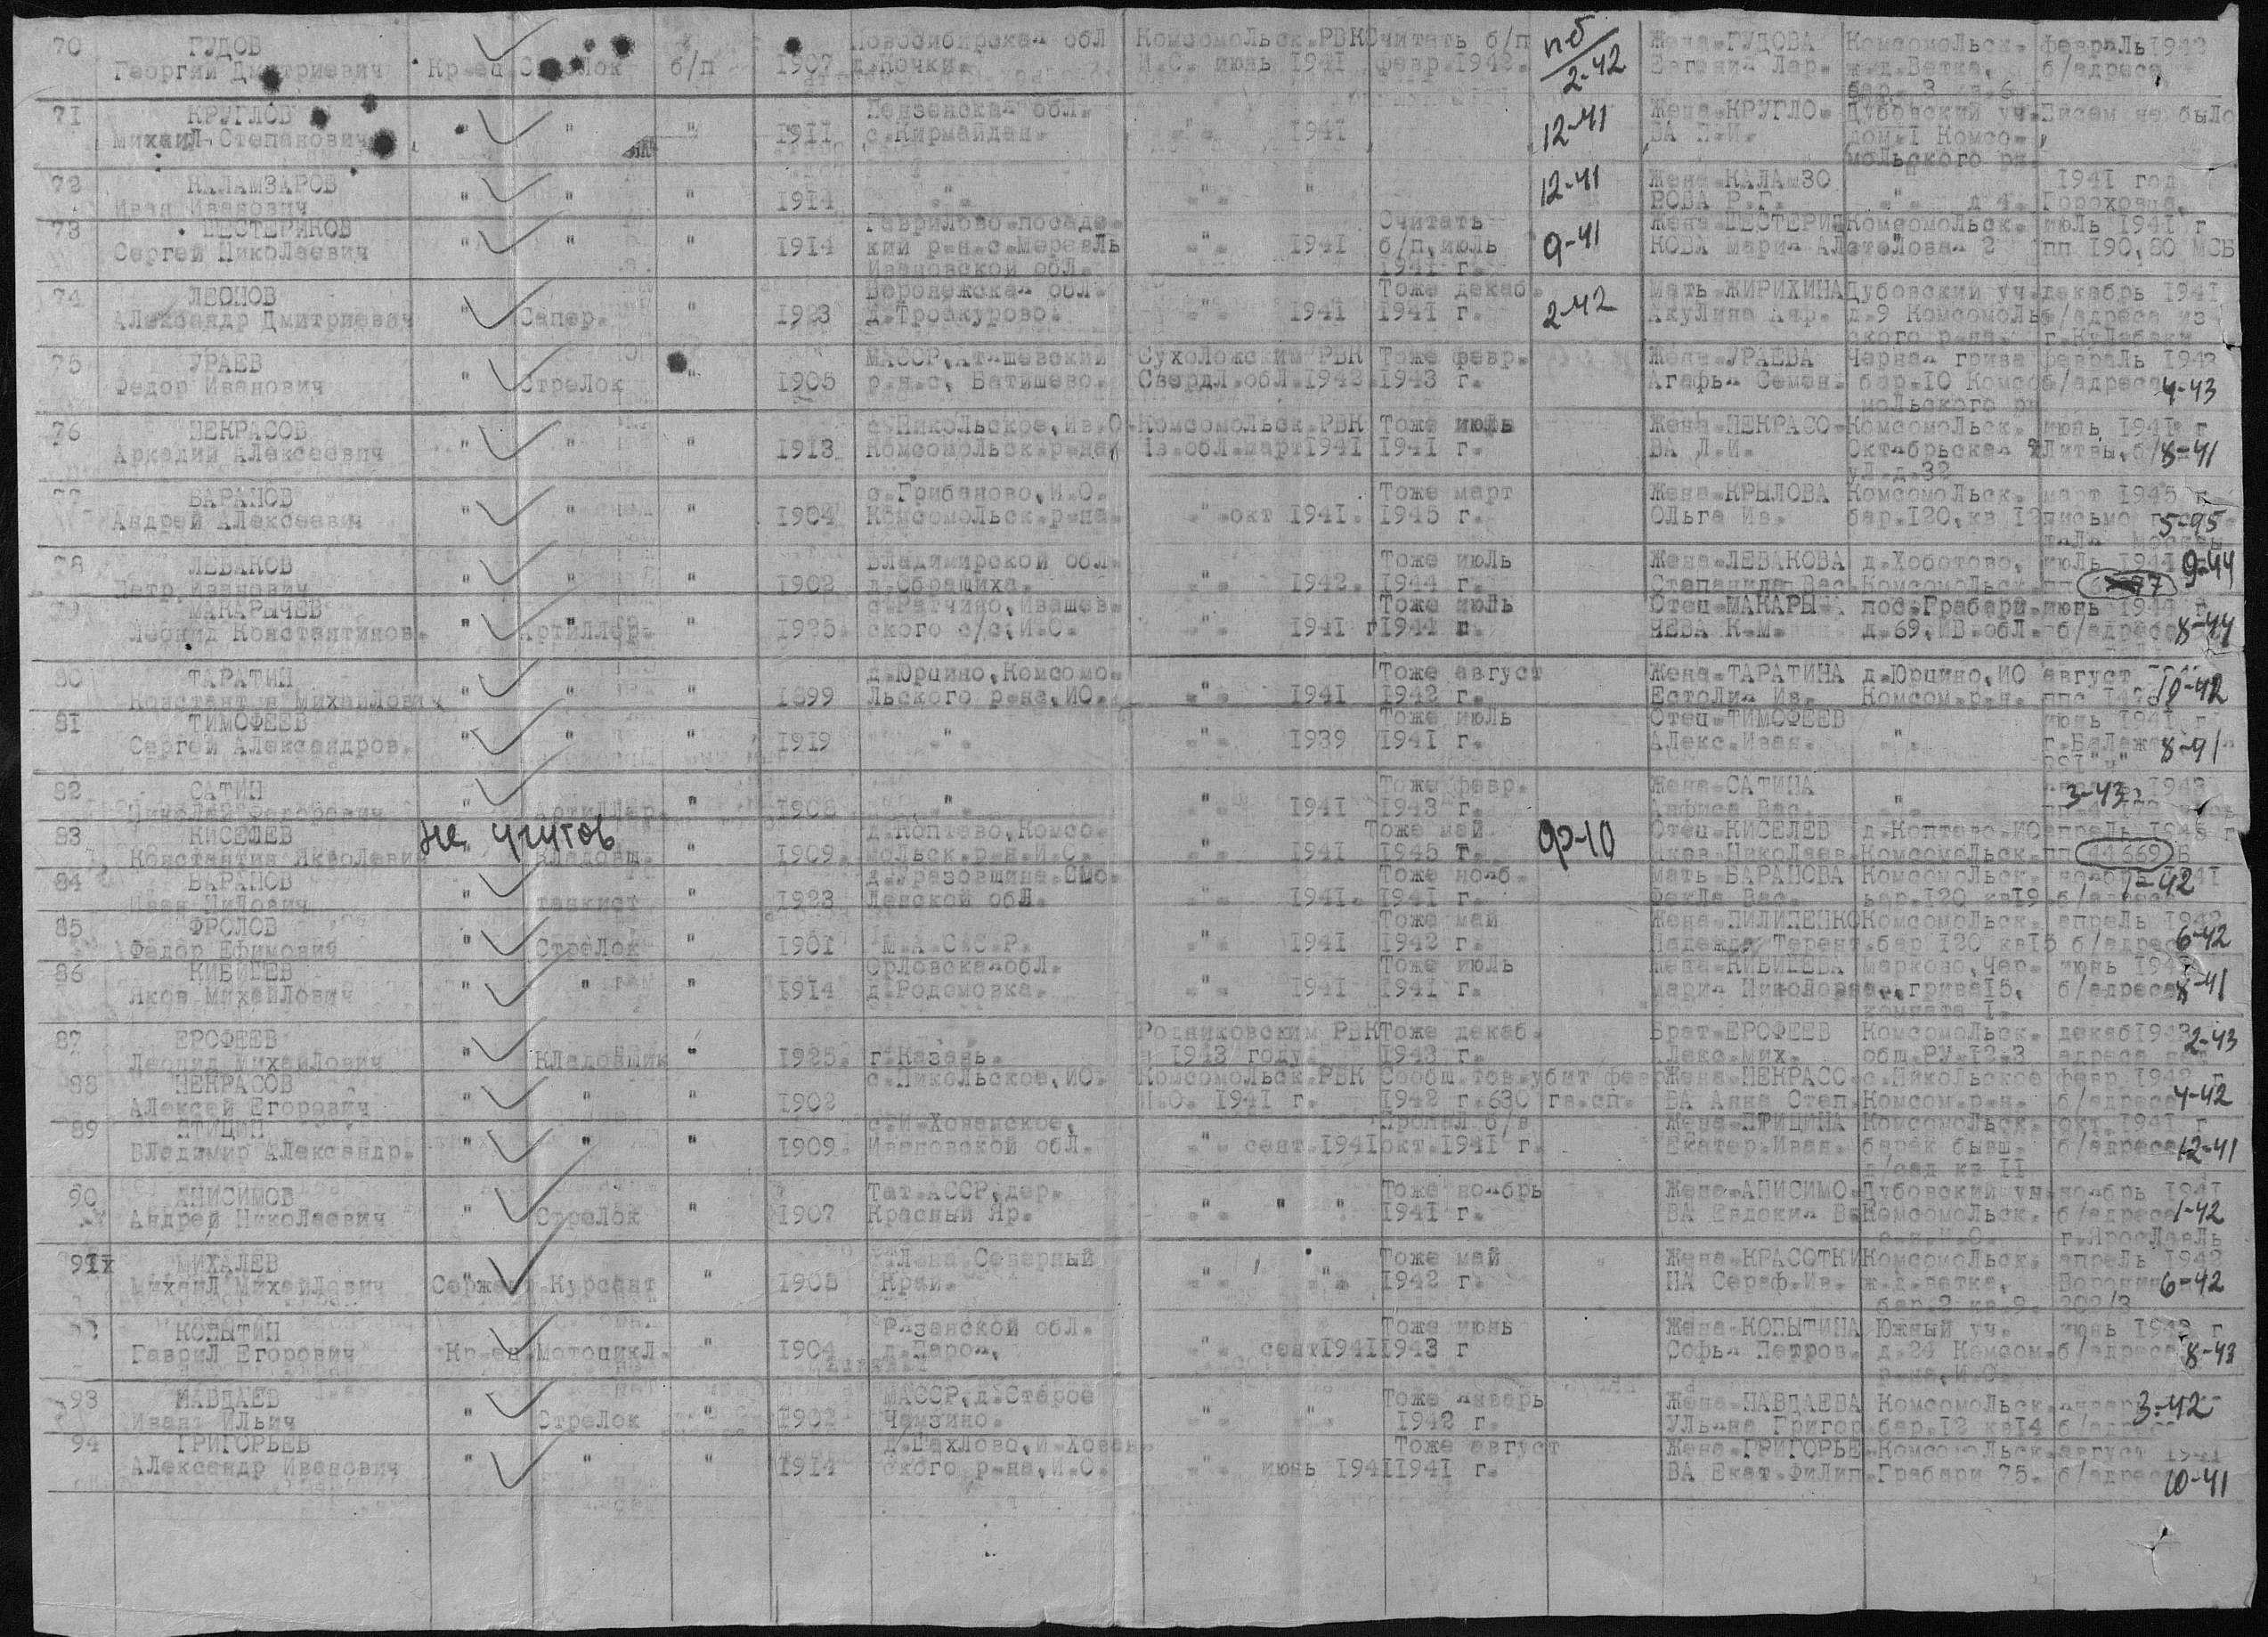 70 ГУДОВ Новосибирская обл Комсомольск.РВК Считать б/п пб Жена-ГУДОВА Комсомольск. февраль1942
Георгий Дмитриевич Кр-ец Стрелок б/п 1907 д.Кочки. И.О. июнь 1941 февр.1942. 2-42 Евгения Лар. ж.д.Ветка, б/адреса
бар. 3 кв.6
71 КРУГЛОВ Пензенская обл. Жена-КРУГЛО- Дубовский уч. Писем не было
Михаил Степанович " " " 1911 с.Кирмайдан. -"- 1941 12-41 ВА П.И. дом.I Комсо-
мольского рн
72 КАЛАМЗАРОВ Жена-КАЛАМЗО 1941 год
Иван Иванович " " " 1914 -"- -"- " 12-41 РОВА Р.Г. -"- д 4. Гороховец.
73 ШЕСТЕРИКОВ Гаврилово-посадс- Считать Жена-ШЕСТЕРИ Комсомольск. июль 1941 г
Сергей Николаевич " " " 1914 кий р-н.с.Меравль -"- 1941 б/п,июль 9-41 КОВА Мария Ал Столовая 2 пп 190,80 МСБ
Ивановской обл. 1941 г.
74 ЛЕОНОВ Воронежская обл. Тоже декаб. Мать-ЖИРИХИНА Дубовский уч. декабрь 1941
Александр Дмитриевич " Сапер. " 1923 д.Троакурово. -"- 1941 1941 г. 2-42 Акулина Лар. д.9 Комсомоль б/адреса из
ского р-на. г.Кулебаки
75 УРАЕВ МАССР,Атяшевский Сухоложским РВК Тоже февр. Жена-УРАЕВА Черная грива февраль 1943
Федор Иванович " Стрелок " 1905 р.н.с, Батишево. Свердл.обл.1942 1943 г. Агафья Семен. бар.10 Комсо б/адреса 4-43
мольского рн
76 НЕКРАСОВ с.Никольское,Ив.О. Комсомольск.РВК Тоже июль Жена-НЕКРАСО- Комсомольск. июнь 1941 г
Аркадий Алексеевич " " " 1913 Комсомольск.р-на, Ив.обл.март1941 1941 г. ВА Л.И. Октябрьская Литвы,б/ 8-41
ул.д.32
77 БАРАНОВ с.Грибаново,И.О. Тоже март Жена-КРЫЛОВА Комсомольск. март 1945 г
Андрей Алексеевич " " " 1904 Комсомольск.р-на. -"-окт 1941. 1945 г. Ольга Ив. бар.120,кв 12 письмо 5-45
78 ЛЕВАКОВ Владимирской обл. Тоже июль Жена-ЛЕВАКОВА д.Хоботово, июль 1944
Петр Иванович " " " 1902 д.Обращиха. -"- 1942. 1944 г. Степанида Вас. Комсомольск. пп 9-44
79 МАКАРЫЧЕВ с.Ратчино,Ивашев- Тоже июль Отец-МАКАРЫ- пос.Грабари. июнь 1944 г
Леонид Константинов. " Артиллер. " 1925 ского с/с,И.О. -"- 1941 г 1944 г. ЧЕВА К.М. д.69,ИВ.обл. б/адреса 8-44
80 ТАРАТИН д.Юрцино,Комсомо- Тоже август Жена-ТАРАТИНА д.Юрцино,ИО август
Константин Михайлович " " " 1899 льского р-на,ИО. -"- 1941 1942 г. Естолия Ив. Комсом.р.н. ппс 10-42
81 ТИМОФЕЕВ Тоже июль Отец-ТИМОФЕЕВ июнь 1941 г
Сергей Александров. " " " 1919 -"- -"- 1939 1941 г. Алекс.Иван. -"- 8-41
82 САТИН Тоже февр. Жена-САТИНА 1943
Николай Федорович " Артиллер. " 1908 -"- -"- 1941 1943 г. Анфиса Вас. -"- 3-43
83 КИСЕЛЕВ д.Коптево,Комсо- Тоже май Отец-КИСЕЛЕВ д.Коптево.ИО апрель 1945 г
Константин Яковлевич не учитов Кладовщ. " 1909 мольск.р-н.И.О. -"- 1941 1945 г. ф-10 Яков Николаев. Комсомольск. пп 14669 В
84 БАРАНОВ д.Уразовщина.Смо- Тоже нояб. Мать-БАРАНОВА Комсомольск.
Иван Нилович " танкист " 1923 ленской обл. -"- 1941. 1941 г. Фекла Вас. бар.120 кв19 б/адреса 1-42
85 ФРОЛОВ Тоже май Жена-ПИЛИПЕНКО Комсомольск. апрель 1942
Федор Ефимович " Стрелок " 1901 М.А.С.С.Р. -"- 1941 1942 г. Надежда Терент. бар 120 кв15 б/адрес 6-42
86 КИБИЦЕВ Орловская обл. Тоже июль Жена-КИБИЦЕВА Марково,Чер- июнь 194
Яков Михайлович " " " 1914 д.Родомовка. -"- 1941 1941 г. Мария Николаевна. грива15, б/адреса 8-41
комната I.
87 ЕРОФЕЕВ Родниковским РВК Тоже декаб. Брат-ЕРОФЕЕВ Комсомольск. декаб1943
Леонид Михайлович " Кладовщик " 1925. г.Казань. в 1943 году 1943 г. Алекс.Мих. общ.РУ.12-3 адреса нет 2-43
88 НЕКРАСОВ с.Никольское,ИО. Комсомольск.РВК Сообщ.тов.убит февр Жена-НЕКРАСО- с.Никольское февр 1942 г
Алексей Егорович " " " 1902 И.О. 1941 г. 1942 г.630 гв.сп. ВА Анна Степ. Комсом.р.н. б/адреса 4-42
89 ПТИЦИН с.И-Хованское, Пропал б/в Жена-ПТИЦИНА Комсомольск. окт.1941 г
Владимир Александр. " " " 1909 Ивановской обл. -"- сент.1941 окт.1941 г. Екатер.Иван. барак бывш. б/адреса 12-41
д/сад кв II
90 АНИСИМОВ Тат.АССР,дер. Тоже ноябрь Жена-АНИСИМО- Дубовский уч. ноябрь 1941
Андрей Николаевич " Стрелок " 1907 Красный Яр. -"- " " 1941 г. ВА Евдокия В. Комсомольск. б/адреса 1-42
г.Ярославль
91 МИХАЛЕВ Северный Тоже май Жена-КРАСОТКИ Комсомольск. апрель 1942
Михаил Михайлович Сержант Курсант " 1908 Край. -"- -"- 1942 г. НА Сераф.Ив. ж.д.ветка, 6-42
бар.2 кв.9. 202/3
92 КОПЫТИН Рязанской обл. Тоже июнь Жена-КОПЫТИНА Южный уч. июнь 1943 г
Гаврил Егорович Кр-ец Мотоцикл. " 1904 д.Парол, -"- сент1941 1943 г Софья Петров. д.24 Комсом. б/адреса 8-43
р-на,И.О.
93 НАВДАЕВ МАССР,д.Старое Тоже январь Жена-НАВДАЕВА Комсомольск.
Иван Ильич " Стрелок 1902 Чемзино. -"- " 1942 г. Ульяна Григор бар.12 кв14 3-42
94 ГРИГОРЬЕВ д.Пахлово,И-Хован- Тоже август Жена-ГРИГОРЬЕ- Комсомольск. август 1941
Александр Иванович " " " 1914 ского р-на,И.О. -"- июнь 1941 1941 г. ВА Екат.Филип. Грабари 75. б/адрес 10-41